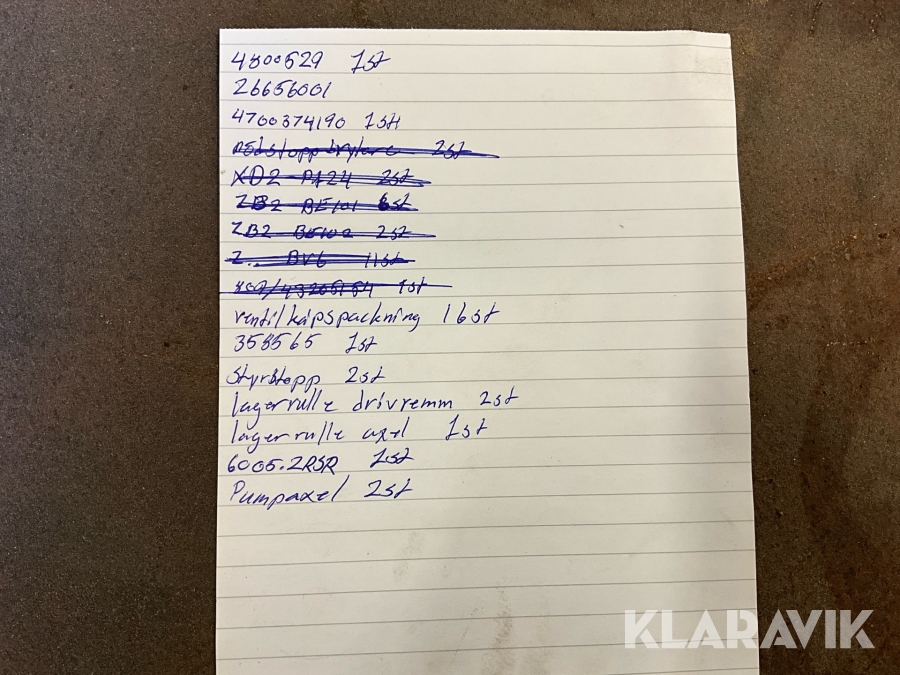 4800529 1st
26656001
4700374190 1st
nödstopp brytare 2st
XD2 PA24 2st
ZB2 BE101 6st
ZB2 BE102 2st
Z.. BV6 11st
1st
ventilkåpspackning 16st
358565 1st
Styrstopp 2st
lagerrulle drivremm 2st
lagerrulle axel 1st
6005.2RSR 1st
Pumpaxel 2st
KLARAVIK